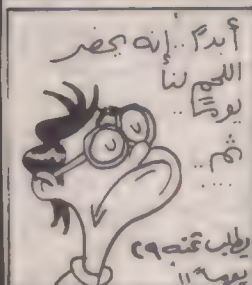 أبداً .. إنه يحضر
اللحم لنا
يوماً
ثم ..
...
يطلب ثمنه ٢٩
يوماً !!